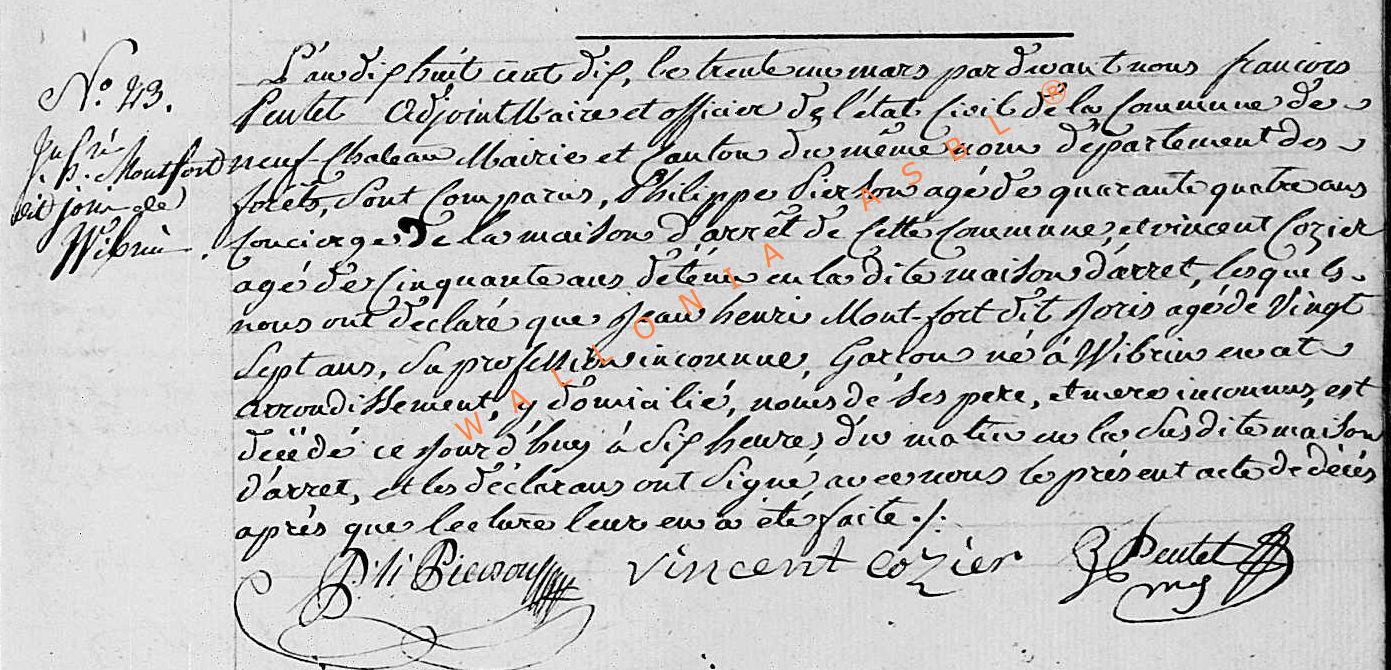 N.º 23.
J. h. Montford
dit joris de
Wibrin.
L'an dix huit cent dix, le trente un mars par devant nous françois
Pentet Adjoint Maire et officier de l'état Civil de la Commune de
neuf-Chateau Mairie et Canton du même nom département des
forêts, sont Comparus, Philippe Pierson agé de quarante quatre ans
Concierge de la maison d'arrêt de Cette Commune, et vincent Cozier
agé de Cinquante ans détenu en la dite maison d'arret, lesquels
nous ont déclaré que Jean henri Mont-fort dit Joris agé de Vingt
Sept ans, Sa profession inconnue, Garçon né à Wibrin en cet
arrondissement, y domicilié, noms de Ses pere, et mere inconnus, est
décédé ce Jourd'huy à Six heures, du matin en la Susdite maison
d'arret, et les déclarans ont Signé avec nous le présent acte de décés
aprés que lecture leur en a été faite ./.
Ph Pierson
vincent cozier
Pentet
WALLONIA ASBL ®